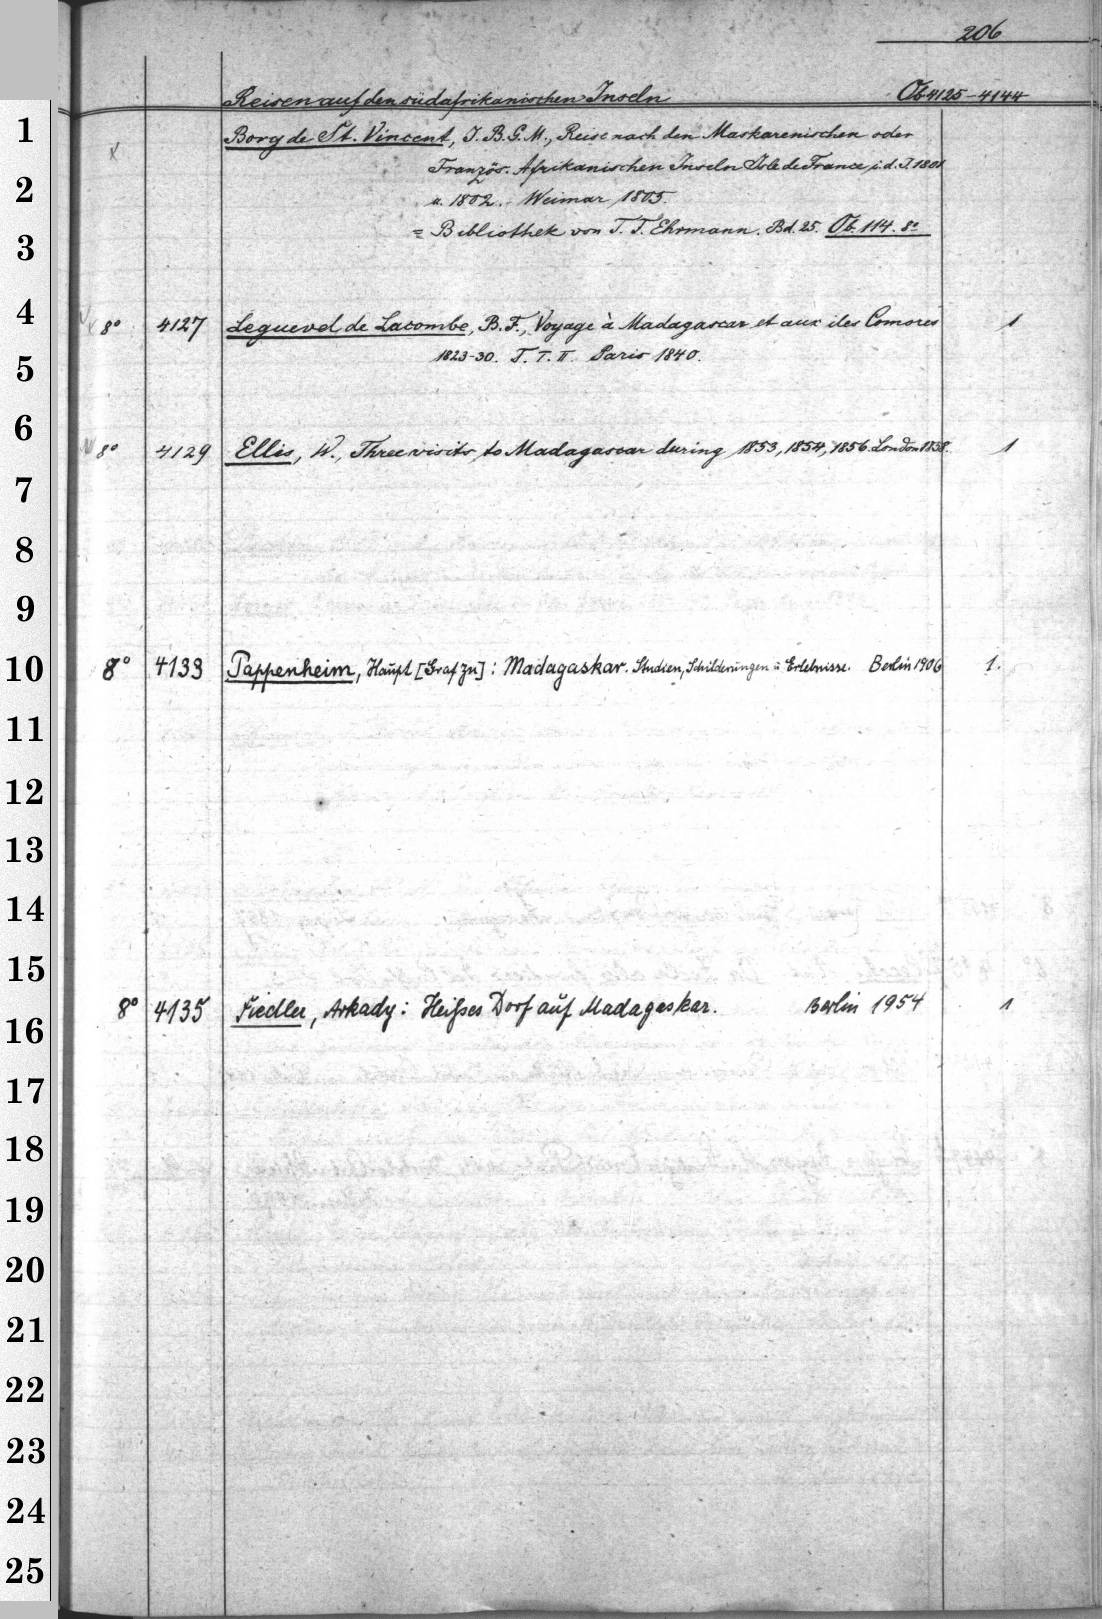 206
Reisen auf den südafrikanischen Inseln Ob 4125-4144
Borg de St. Vincent, J. B. G. M., Reise nach den Maskarenischen oder
Französ. Afrikanischen Inseln Isle de France, i. d. J. 1801
u. 1802. - Weimar 1805.
= Bibliothek von T. F. Ehrmann. Bd. 25. Ob. 114. 8°
8° 4127 Leguevel de Lacombe, B. F., Voyage à Madagascar et aux iles Comores 1
1823-30. T. I. II. Paris 1840.
8° 4129 Ellis, W., Three visits to Madagascar during 1853, 1854, 1856. London 1858. 1
8° 4133 Pappenheim, Haupt [Graf zu]: Madagaskar. Studien, Schilderungen u Erlebnisse. Berlin 1906 1.
8° 4135 Fiedler, Arkady: Heißes Dorf auf Madagaskar. Berlin 1954 1
1
2
3
4
5
6
7
8
9
10
11
12
13
14
15
16
17
18
19
20
21
22
23
24
25